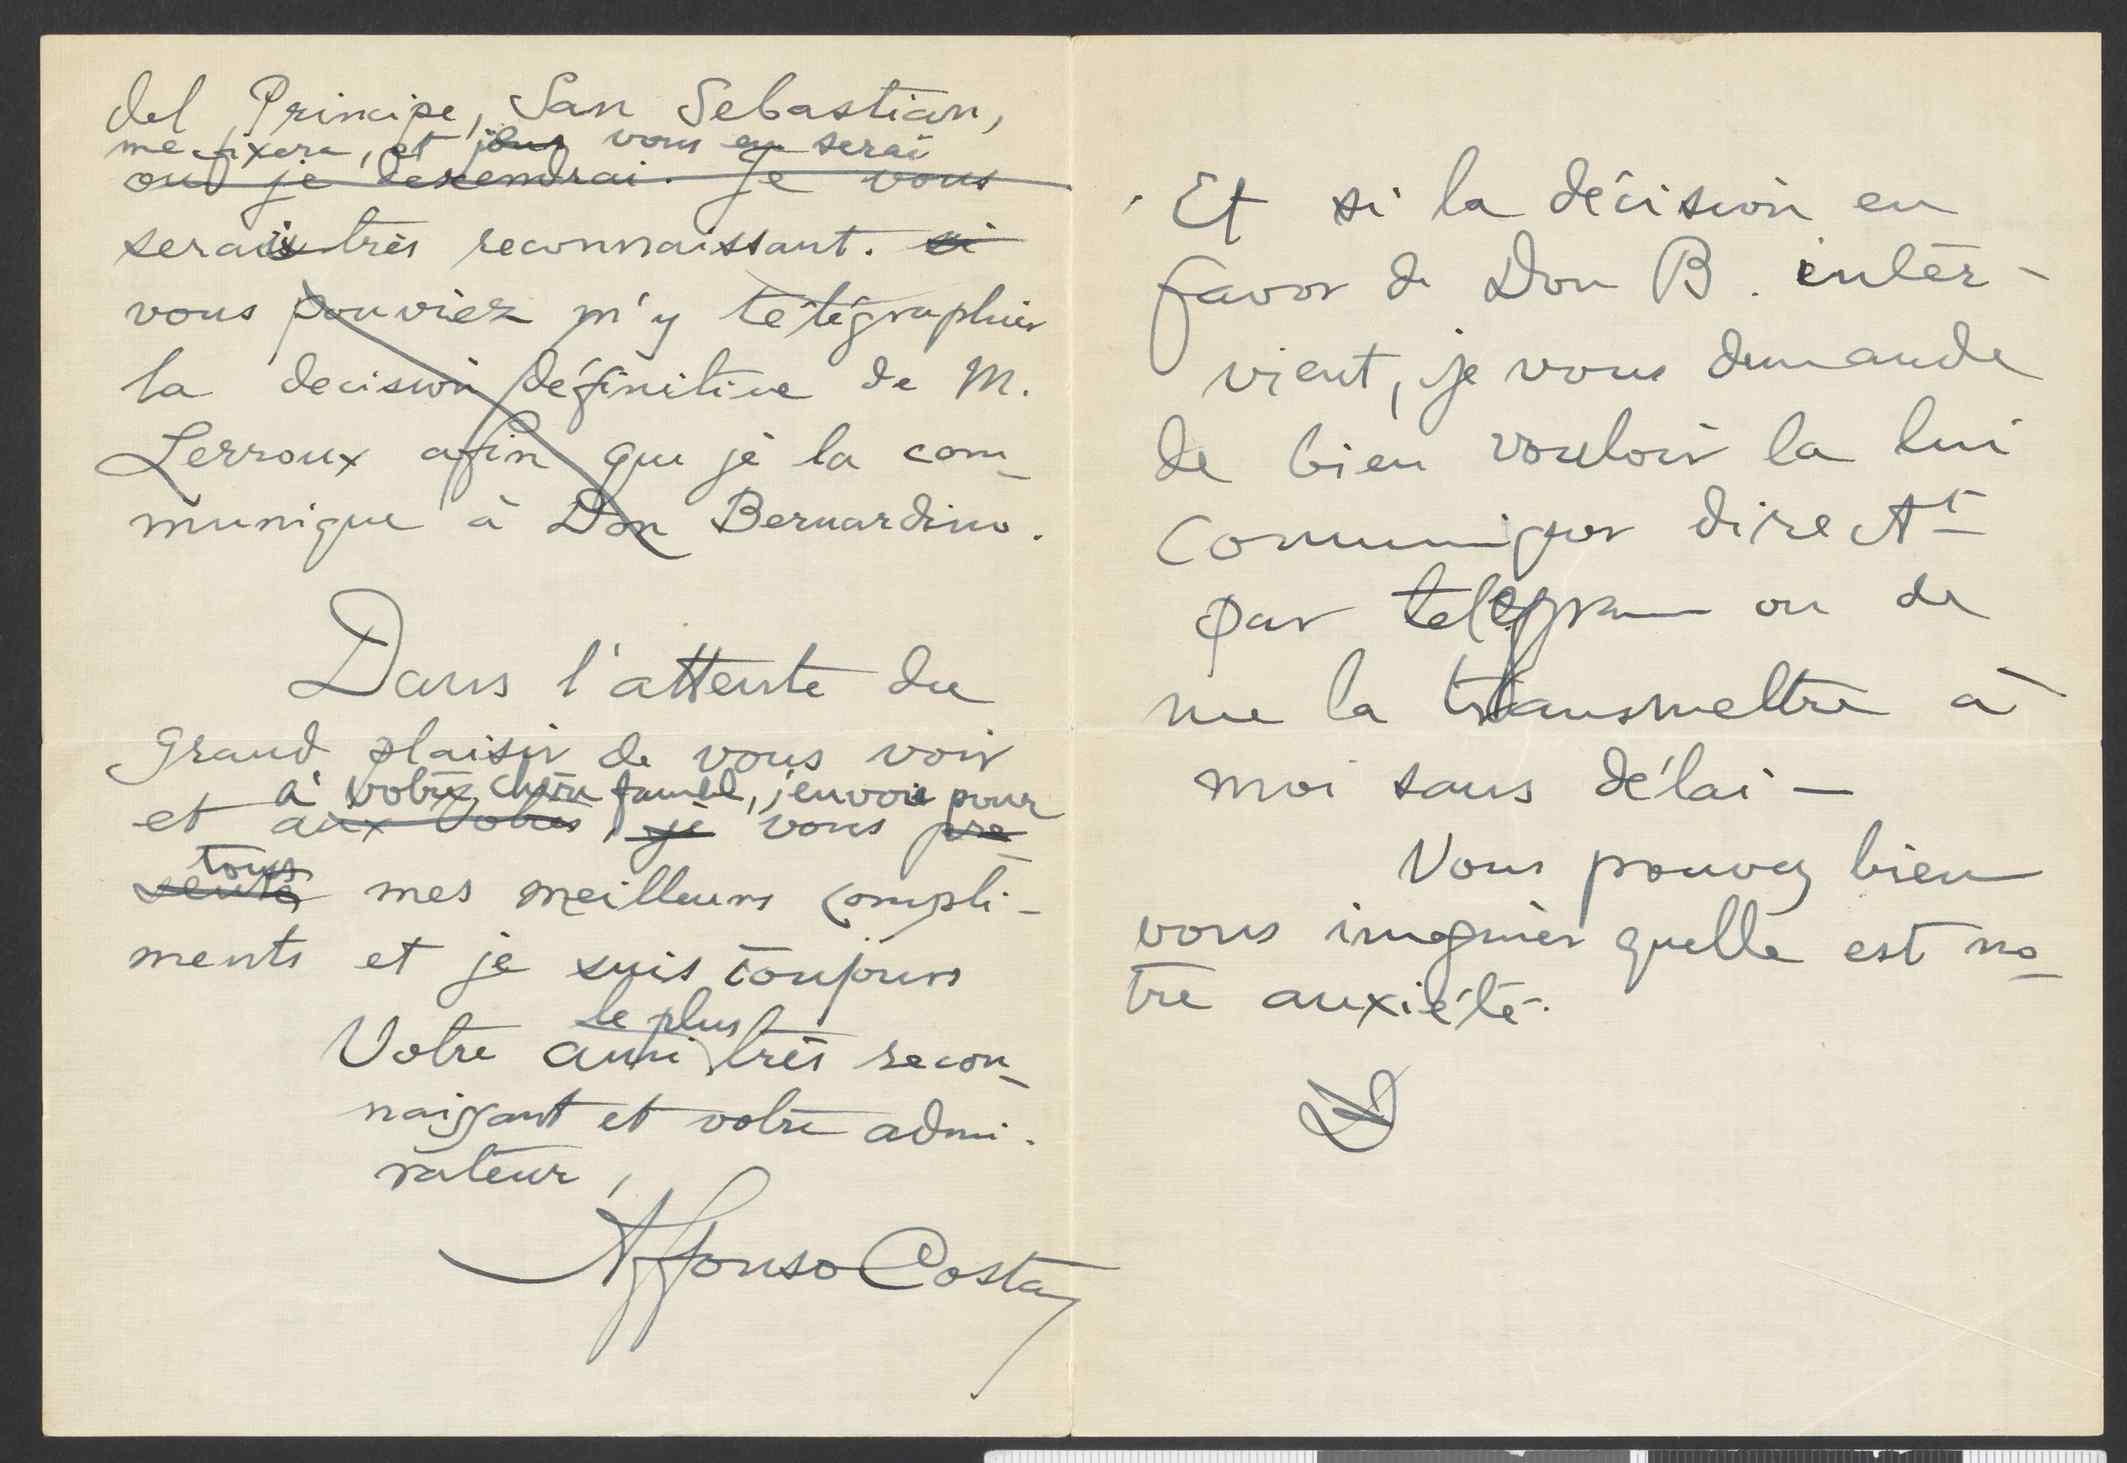 del Principe, San Sebastian,
me fixera, et je vous en serai
où je descendrai. Je vous
serais très reconnaissant. si
vous pouviez m'y télégraphier
la decision définitive de M.
Lerroux afin que je la com-
munique à Don Bernardino.
Dans l'attente du
grand plaisir de vous voir
à votre chère famille, j'envoie pour
et aux votres, je vous pre-
tous
sente mes meilleurs compli-
ments et je suis toujours
le plus
Votre ami très recon-
naissant et votre admi-
rateur,
Affonso Costa
Et si la décision en
favor de Don B. inter-
vient, je vous demande
de bien vouloir la lui
communiquer direct.t
par telegramme ou de
me la transmettre à
moi sans délai —
Vous pouvez bien
vous imaginer quelle est no-
tre anxiété.